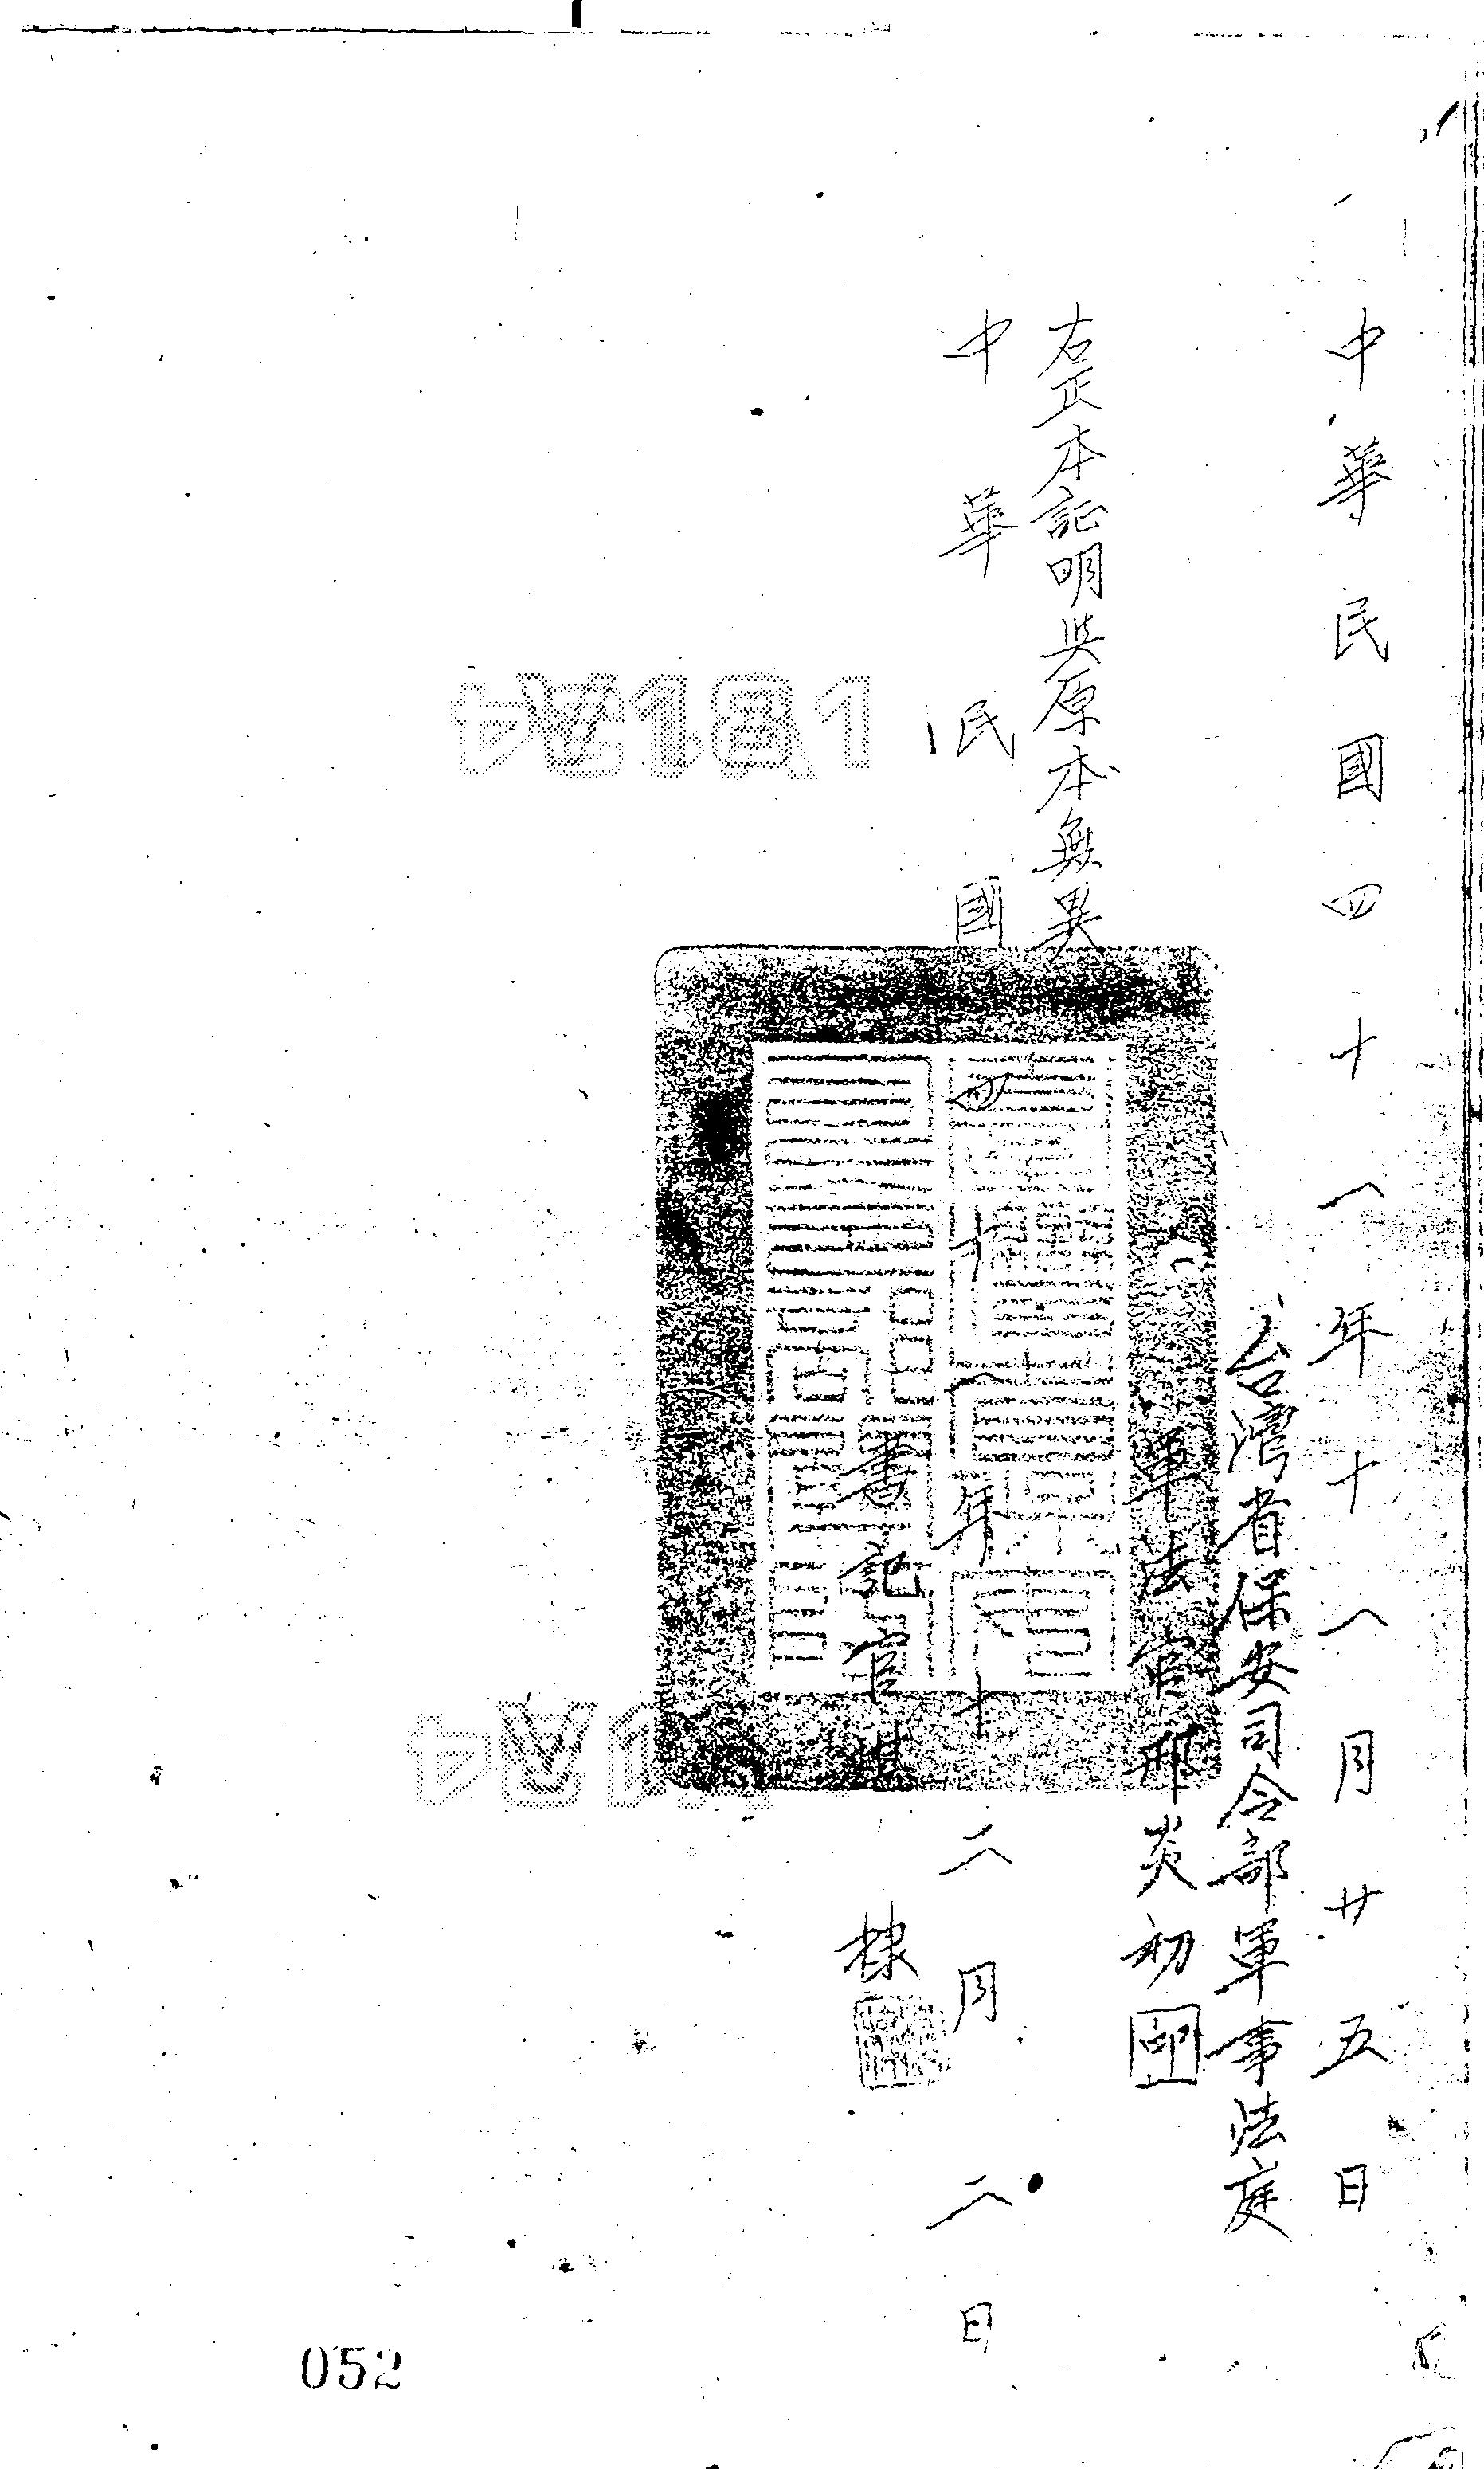 中華民國四十一年十一月廿五日
台灣省保安司令部軍事法庭
軍法官邢炎初印
右正本証明與原本無異
中華民國四十一年十二月二日
書記官 棣
052